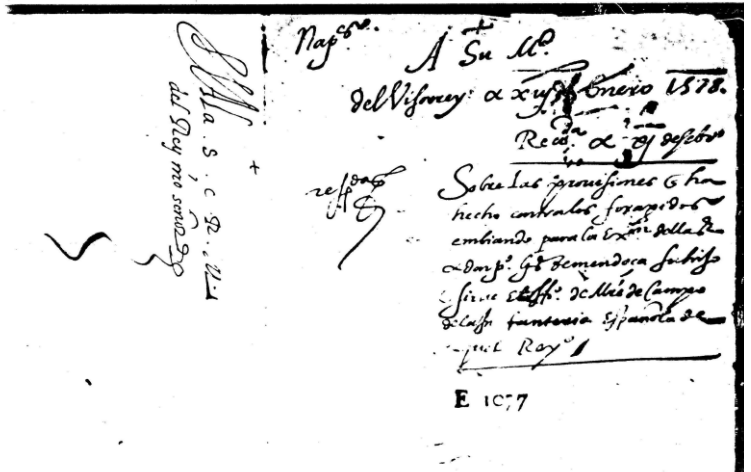 Nap<sup>es</sup>.
A Su M<sup>d</sup>.
del Visorrey a xvij de Enero 1578.
Rec<sup>da</sup> a xj de febr<sup>o</sup>
resp<sup>da</sup>
Sobre las provisiones q ha
hecho contra los forajidos
embiando para la ex<sup>on</sup> dellas
a don p<sup>o</sup> g<sup>s</sup> de mendoça su hijo
q sirve el off<sup>o</sup> de Mr<sup>e</sup> de Campo
dela Infanteria Española de
aquel Rey<sup>o</sup>
E 1077
A la S. C. R. M.
del Rey mo señor